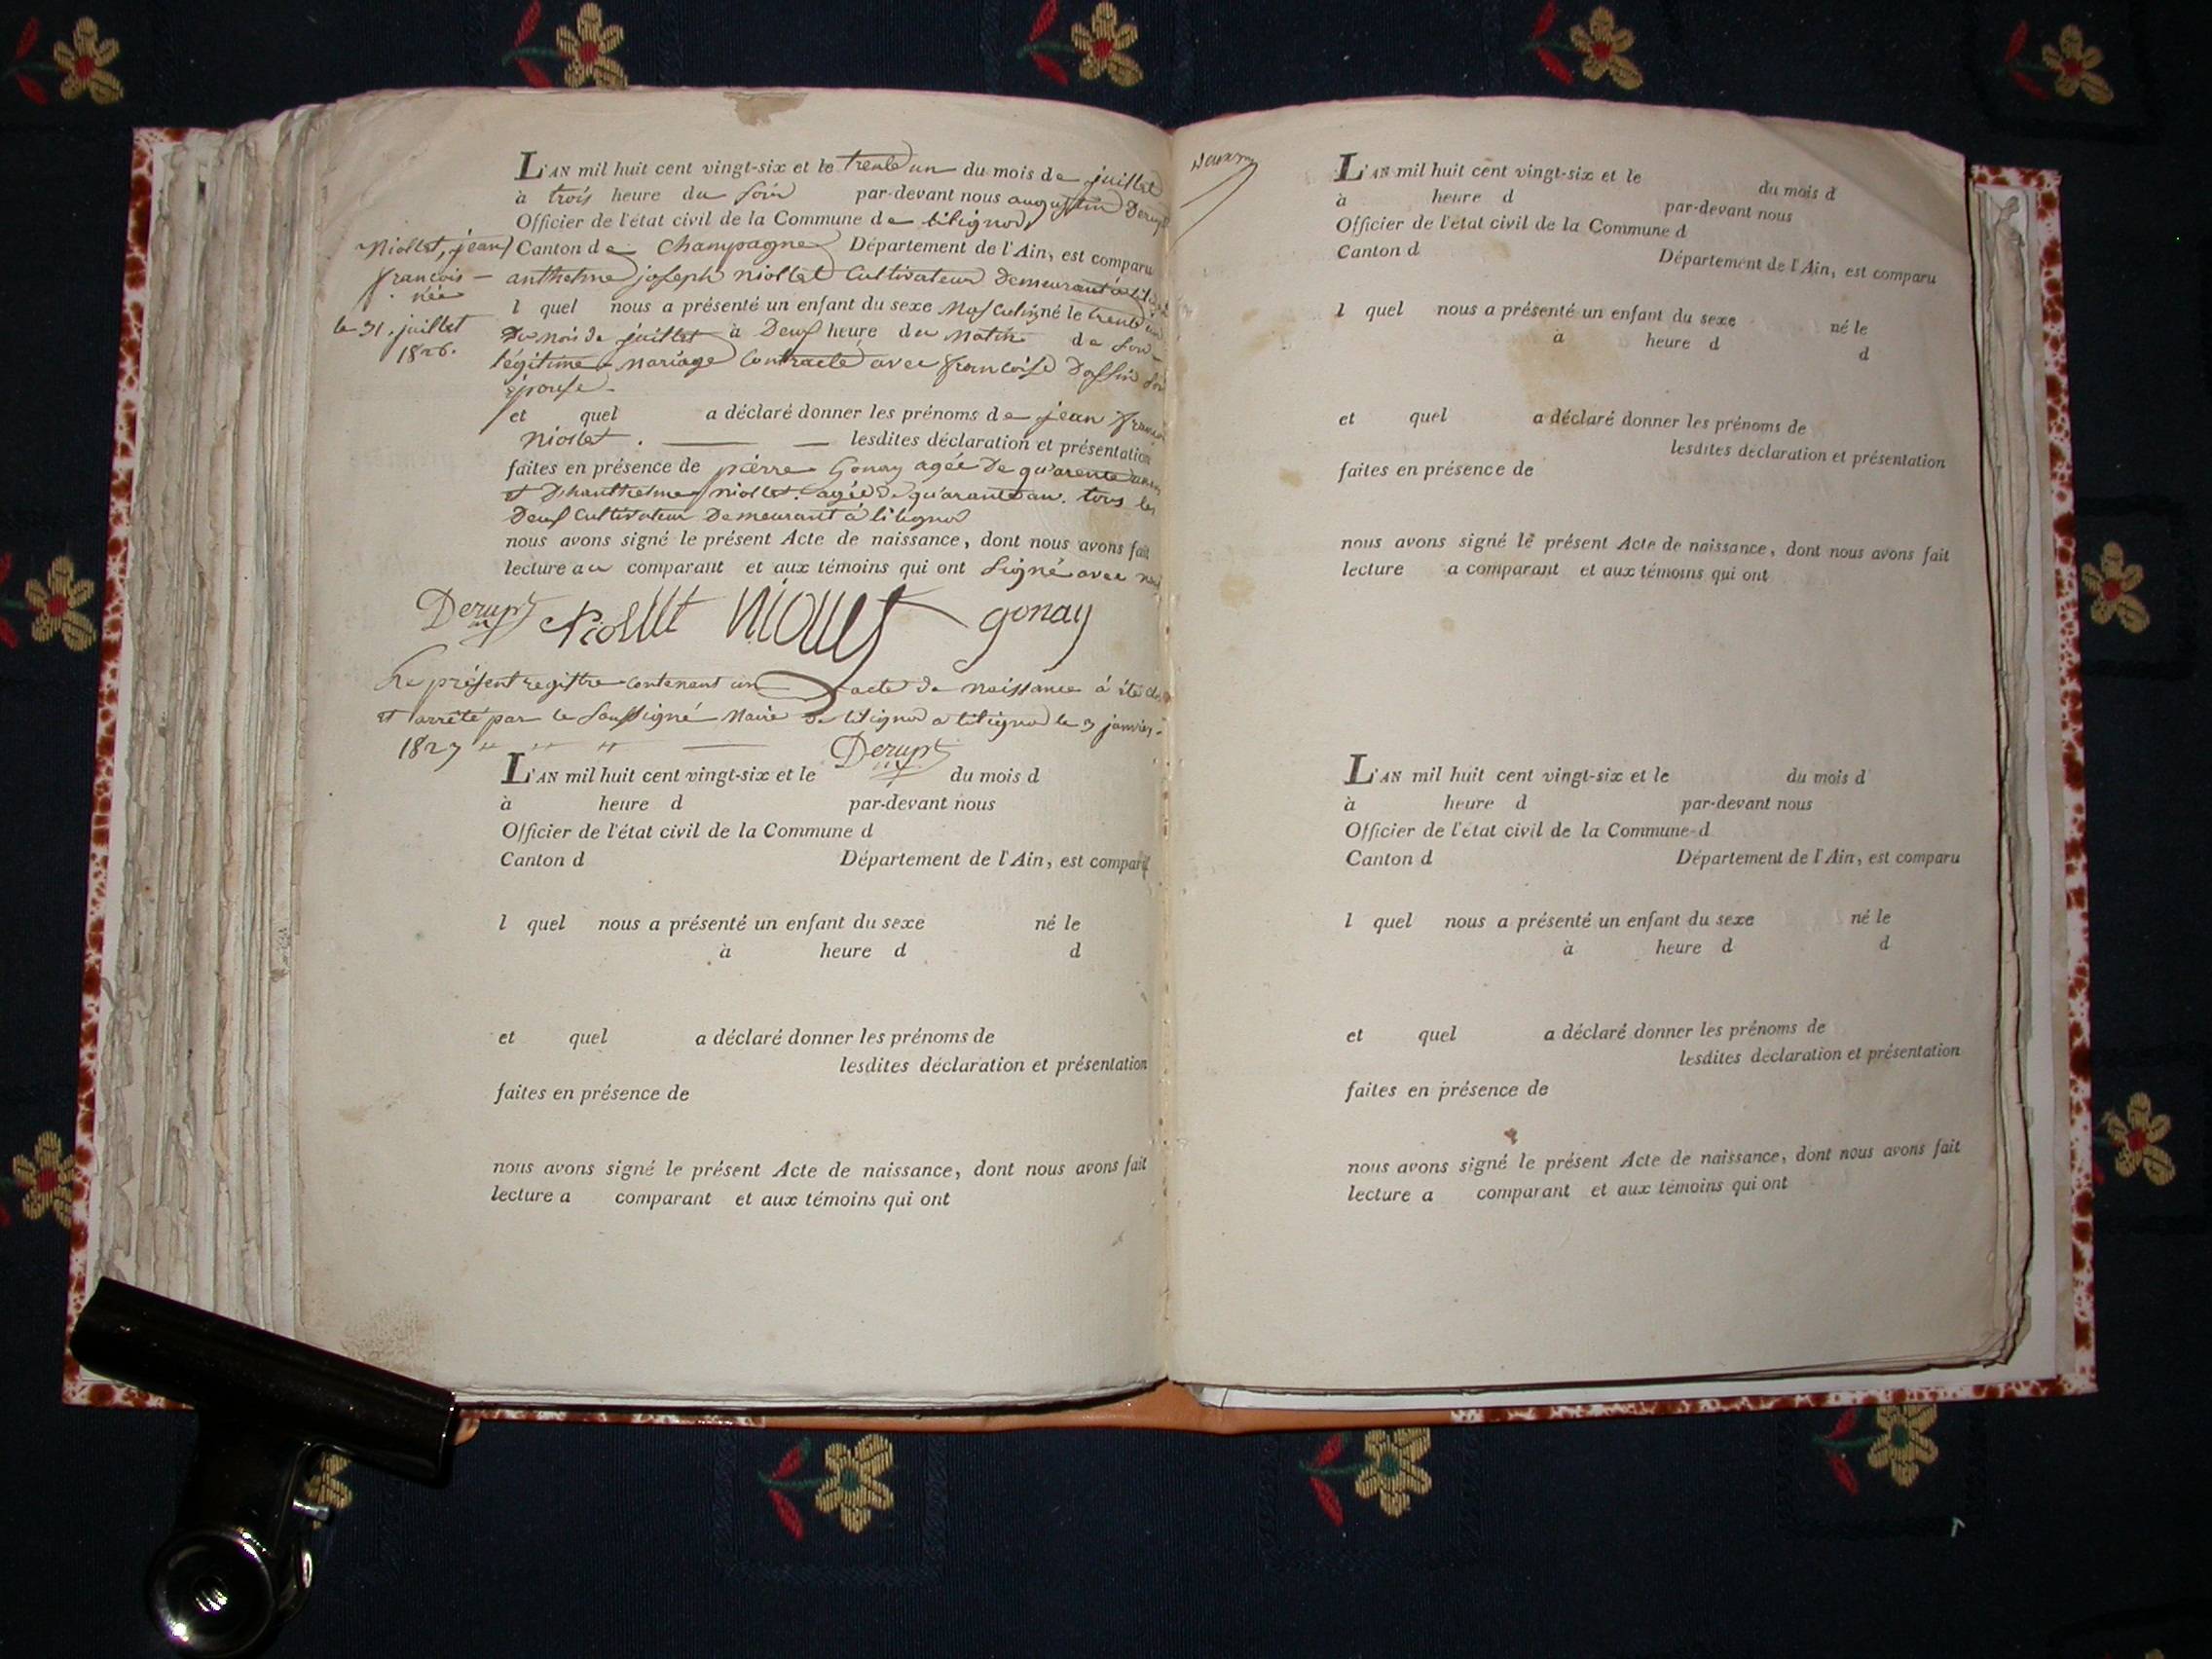 L'AN mil huit cent vingt-six et le trente un du mois de juillet
à trois heure du soir par-devant nous augustin Derupt
Officier de l'état civil de la Commune de litignod
Niollet, jean
françois
née
le 31 juillet
1826.
Canton de Champagne Département de l'Ain, est comparu
anthelme joseph niollet Cultivateur demeurant à
l quel nous a présenté un enfant du sexe Masculin né le trente un
du mois de juillet à Deux heure du Matin de son
légitime mariage Contracté avec françoise Dossin son
épouse
et quel a déclaré donner les prénoms de jean françois
niollet. lesdites déclaration et présentation
faites en présence de pierre Gonay agée de quarente
et Dhanthelme niollet. agée de quarante an. tous les
Deux Cultivateur Demeurant à litignod
nous avons signé le présent Acte de naissance, dont nous avons fait
lecture au comparant et aux témoins qui ont signé avec nous
Derupt Niollet Niollet gonay
Le présent registre contenant un acte de naissance à été clos
et arrêté par le soussigné Maire de litignod a litignod le 3 janvier
1827 " " "
Derupt
L'AN mil huit cent vingt-six et le du mois d
à heure d par-devant nous
Officier de l'état civil de la Commune d
Canton d Département de l'Ain, est comparu
l quel nous a présenté un enfant du sexe né le
à heure d d
et quel a déclaré donner les prénoms de
lesdites déclaration et présentation
faites en présence de
nous avons signé le présent Acte de naissance, dont nous avons fait
lecture a comparant et aux témoins qui ont
L'AN mil huit cent vingt-six et le du mois d
à heure d par-devant nous
Officier de l'état civil de la Commune d
Canton d Département de l'Ain, est comparu
l quel nous a présenté un enfant du sexe né le
à heure d d
et quel a déclaré donner les prénoms de
lesdites déclaration et présentation
faites en présence de
nous avons signé le présent Acte de naissance, dont nous avons fait
lecture a comparant et aux témoins qui ont
L'AN mil huit cent vingt-six et le du mois d
à heure d par-devant nous
Officier de l'état civil de la Commune d
Canton d Département de l'Ain, est comparu
l quel nous a présenté un enfant du sexe né le
à heure d d
et quel a déclaré donner les prénoms de
lesdites déclaration et présentation
faites en présence de
nous avons signé le présent Acte de naissance, dont nous avons fait
lecture a comparant et aux témoins qui ont